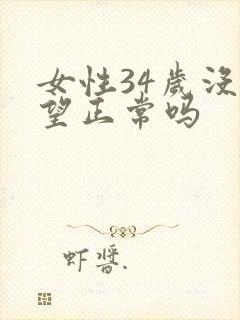 女性34岁没
望正常吗
虾酱.